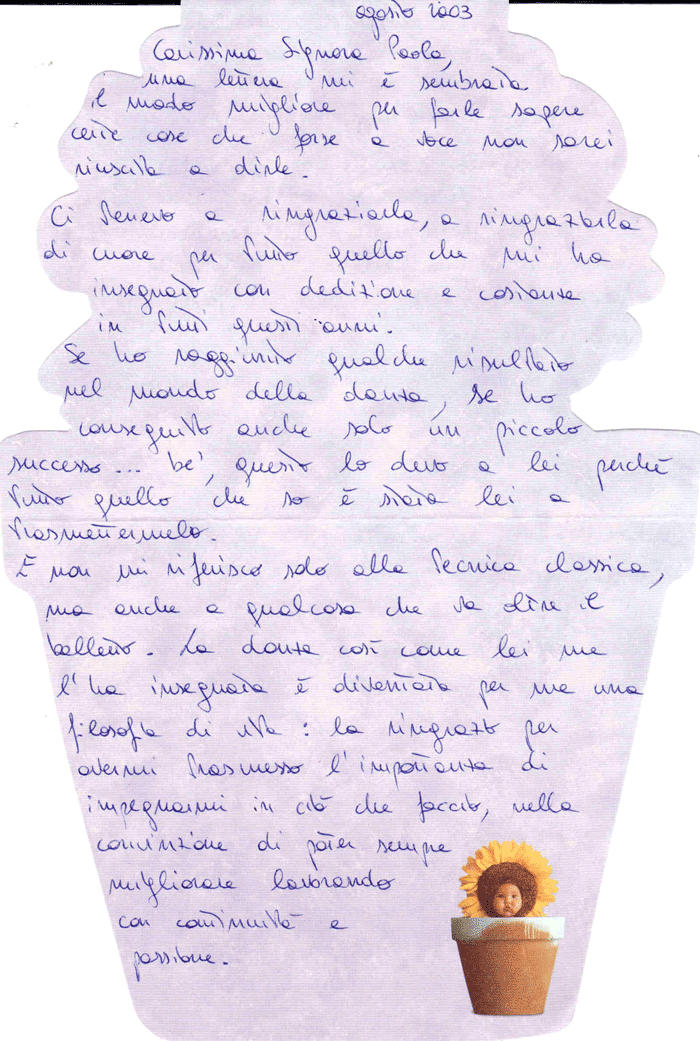 agosto 2003
Carissima Signora Paola,
una lettera mi è sembrata
il modo migliore per farle sapere
certe cose che forse a voce non sarei
riuscita a dirle.
Ci tenevo a ringraziarla, a ringraziarla
di cuore per tutto quello che mi ha
insegnato con dedizione e costanza
in tutti questi anni.
Se ho raggiunto qualche risultato
nel mondo della danza, se ho
conseguito anche solo un piccolo
successo... be', questo lo devo a lei perché
tutto quello che so è stata lei a
trasmettermelo.
E non mi riferisco solo alla tecnica classica,
ma anche a qualcosa che va oltre il
balletto. La danza così come lei me
l'ha insegnata è diventata per me una
filosofia di vita: la ringrazio per
avermi trasmesso l'importanza di
impegnarmi in ciò che faccio, nella
convinzione di poter sempre
migliorare lavorando
con continuità e
passione.